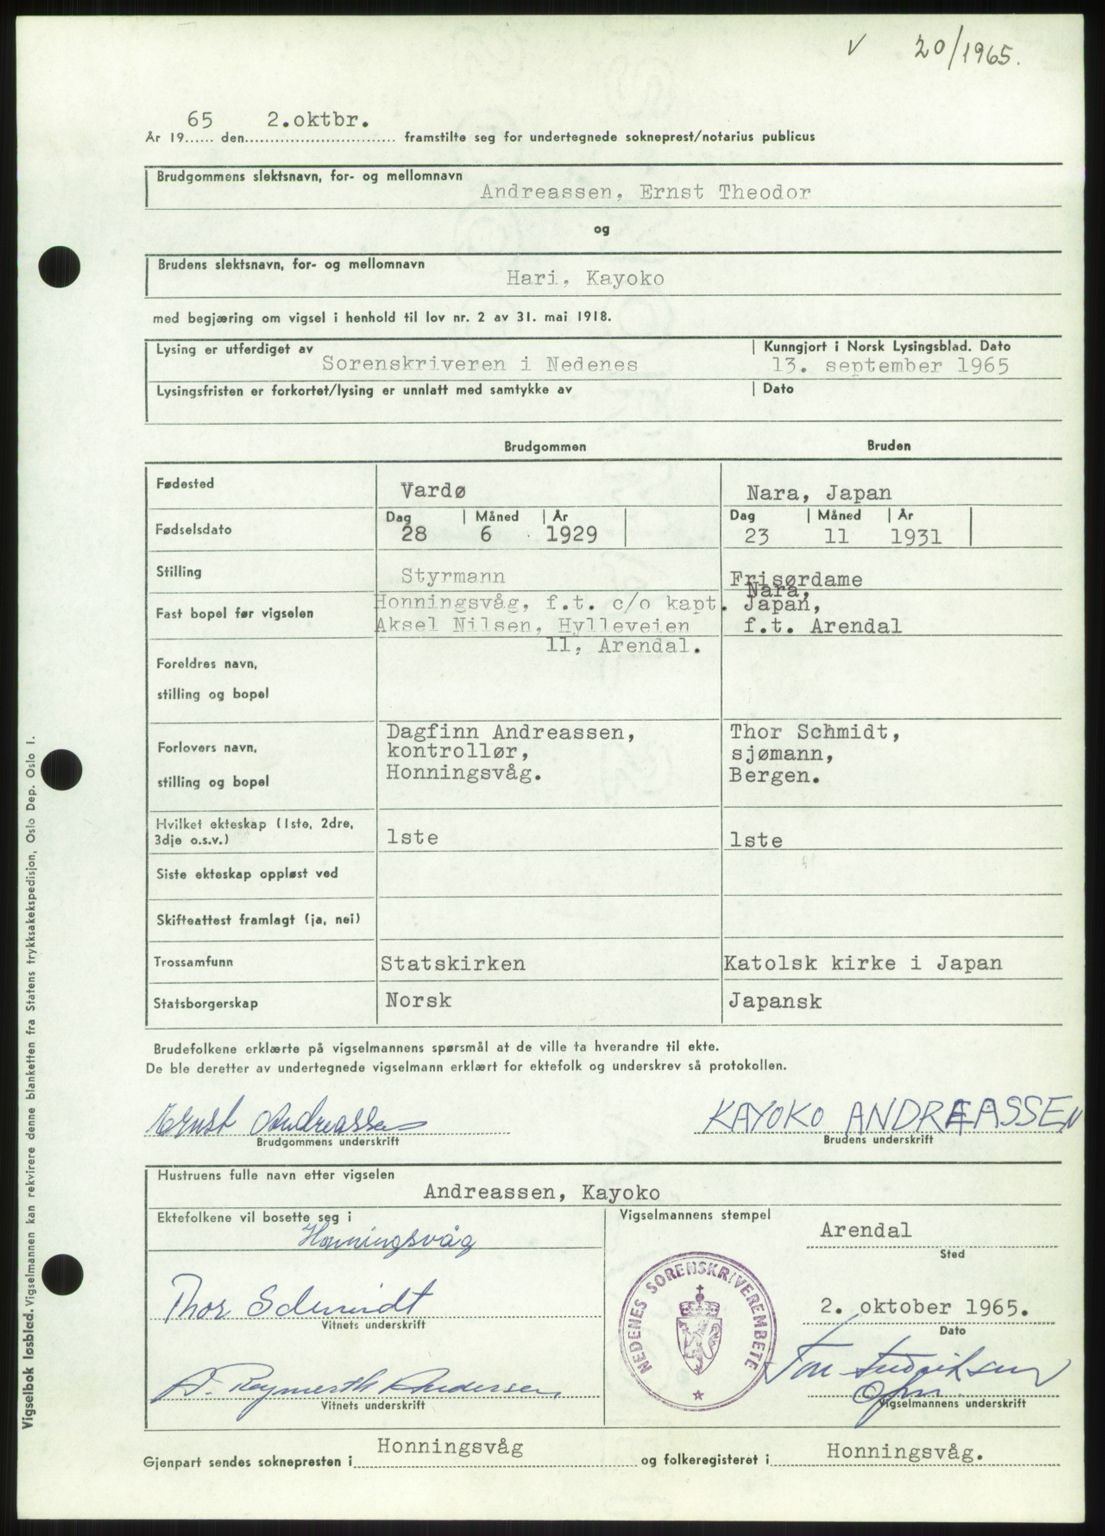 V 20/1965.
År 1965 den 2.oktbr. framstilte seg for undertegnede sokneprest/notarius publicus
Brudgommens slektsnavn, for- og mellomnavn
Andreassen, Ernst Theodor
og
Brudens slektsnavn, for- og mellomnavn
Hari, Kayoko
med begjæring om vigsel i henhold til lov nr. 2 av 31. mai 1918.
Lysing er utferdiget av | Kunngjort i Norsk Lysingsblad. Dato
Sorenskriveren i Nedenes 13. september 1965
Lysingsfristen er forkortet/lysing er unnlatt med samtykke av | Dato
Brudgommen Bruden
Fødested Vardø Nara, Japan
Dag | Måned | År | Dag | Måned | År |
Fødselsdato 28 6 1929 23 11 1931
Stilling Styrmann Frisørdame
Fast bopel før vigselen Honningsvåg, f.t. c/o kapt. Nara, Japan,
Aksel Nilsen, Hylleveien f.t. Arendal
11, Arendal.
Foreldres navn,
stilling og bopel
Forlovers navn, Dagfinn Andreassen, Thor Schmidt,
kontrollør, sjømann,
stilling og bopel Honningsvåg. Bergen.
Hvilket ekteskap (1ste, 2dre,
3dje o.s.v.) 1ste 1ste
Siste ekteskap oppløst ved
Skifteattest framlagt (ja, nei)
Trossamfunn Statskirken Katolsk kirke i Japan
Statsborgerskap Norsk Japansk
Brudefolkene erklærte på vigselmannens spørsmål at de ville ta hverandre til ekte.
De ble deretter av undertegnede vigselmann erklært for ektefolk og underskrev så protokollen.
Ernst Andreassen KAYOKO ANDREASSEN
Brudgommens underskrift Brudens underskrift
Hustruens fulle navn etter vigselen
Andreassen, Kayoko
Ektefolkene vil bosette seg i Vigselmannens stempel
Honningsvåg Arendal
Sted
NEDENES SORENSKRIVEREMBETE
Thor Schmidt 2. oktober 1965.
Vitnets underskrift Dato
Andersen
Vitnets underskrift Vigselmannens underskrift
Gjenpart sendes soknepresten i Honningsvåg og folkeregisteret i Honningsvåg.
Vigselbok løsblad. Vigselmannen kan rekvirere denne blanketten fra Statens trykksakekspedisjon, Oslo Dep. Oslo 1.